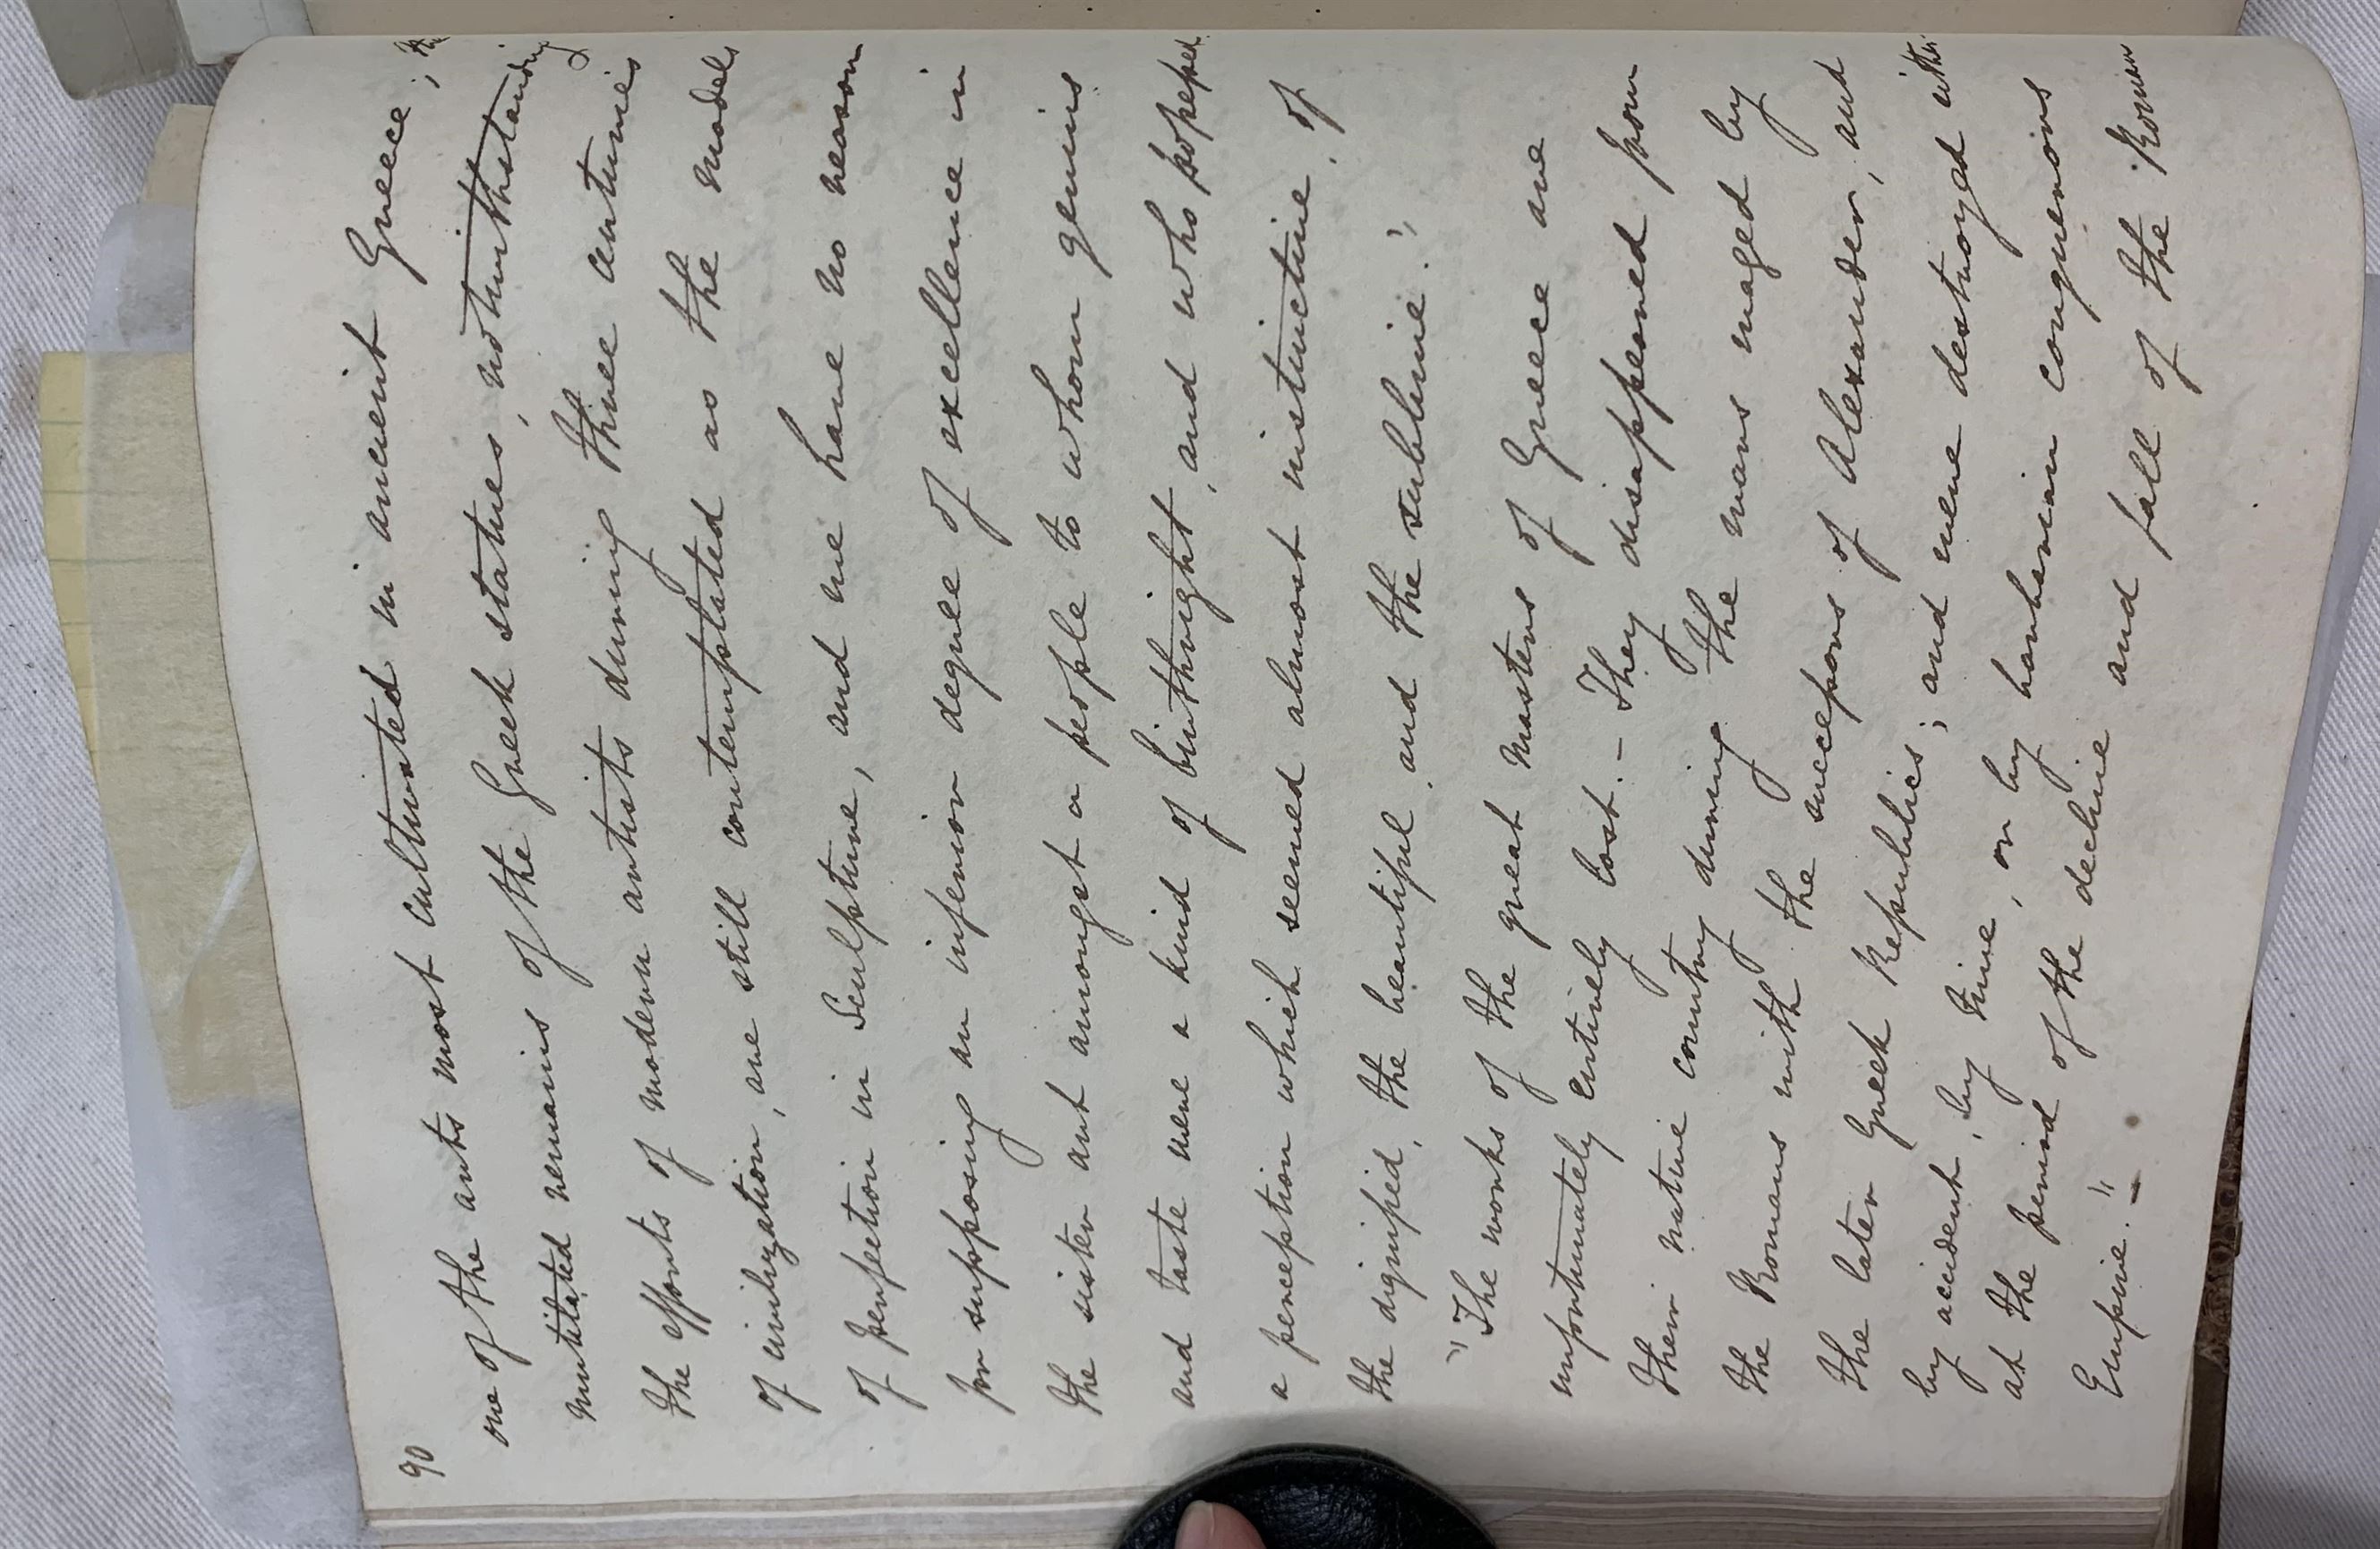 90
one of the arts most cultivated in ancient Greece; the
mutilated remains of the Greek statues, notwithstanding
the efforts of modern artists during three centuries
of civilization, are still contemplated as the models
of perfection in Sculpture, and we have no reason
for supposing an inferior degree of excellence in
the sister art amongst a people to whom genius
and taste were a kind of birthright, and who possessed
a perception which seemed almost instinctive, of
the dignified, the beautiful, and the sublime."
"The works of the great masters of Greece are
unfortunately entirely lost. – They disappeared from
their native country during the wars waged by
the Romans with the successors of Alexander, and
the later Greek Republics; and were destroyed either
by accident, by time, or by barbarian conquerors
at the period of the decline and fall of the Roman
Empire." –